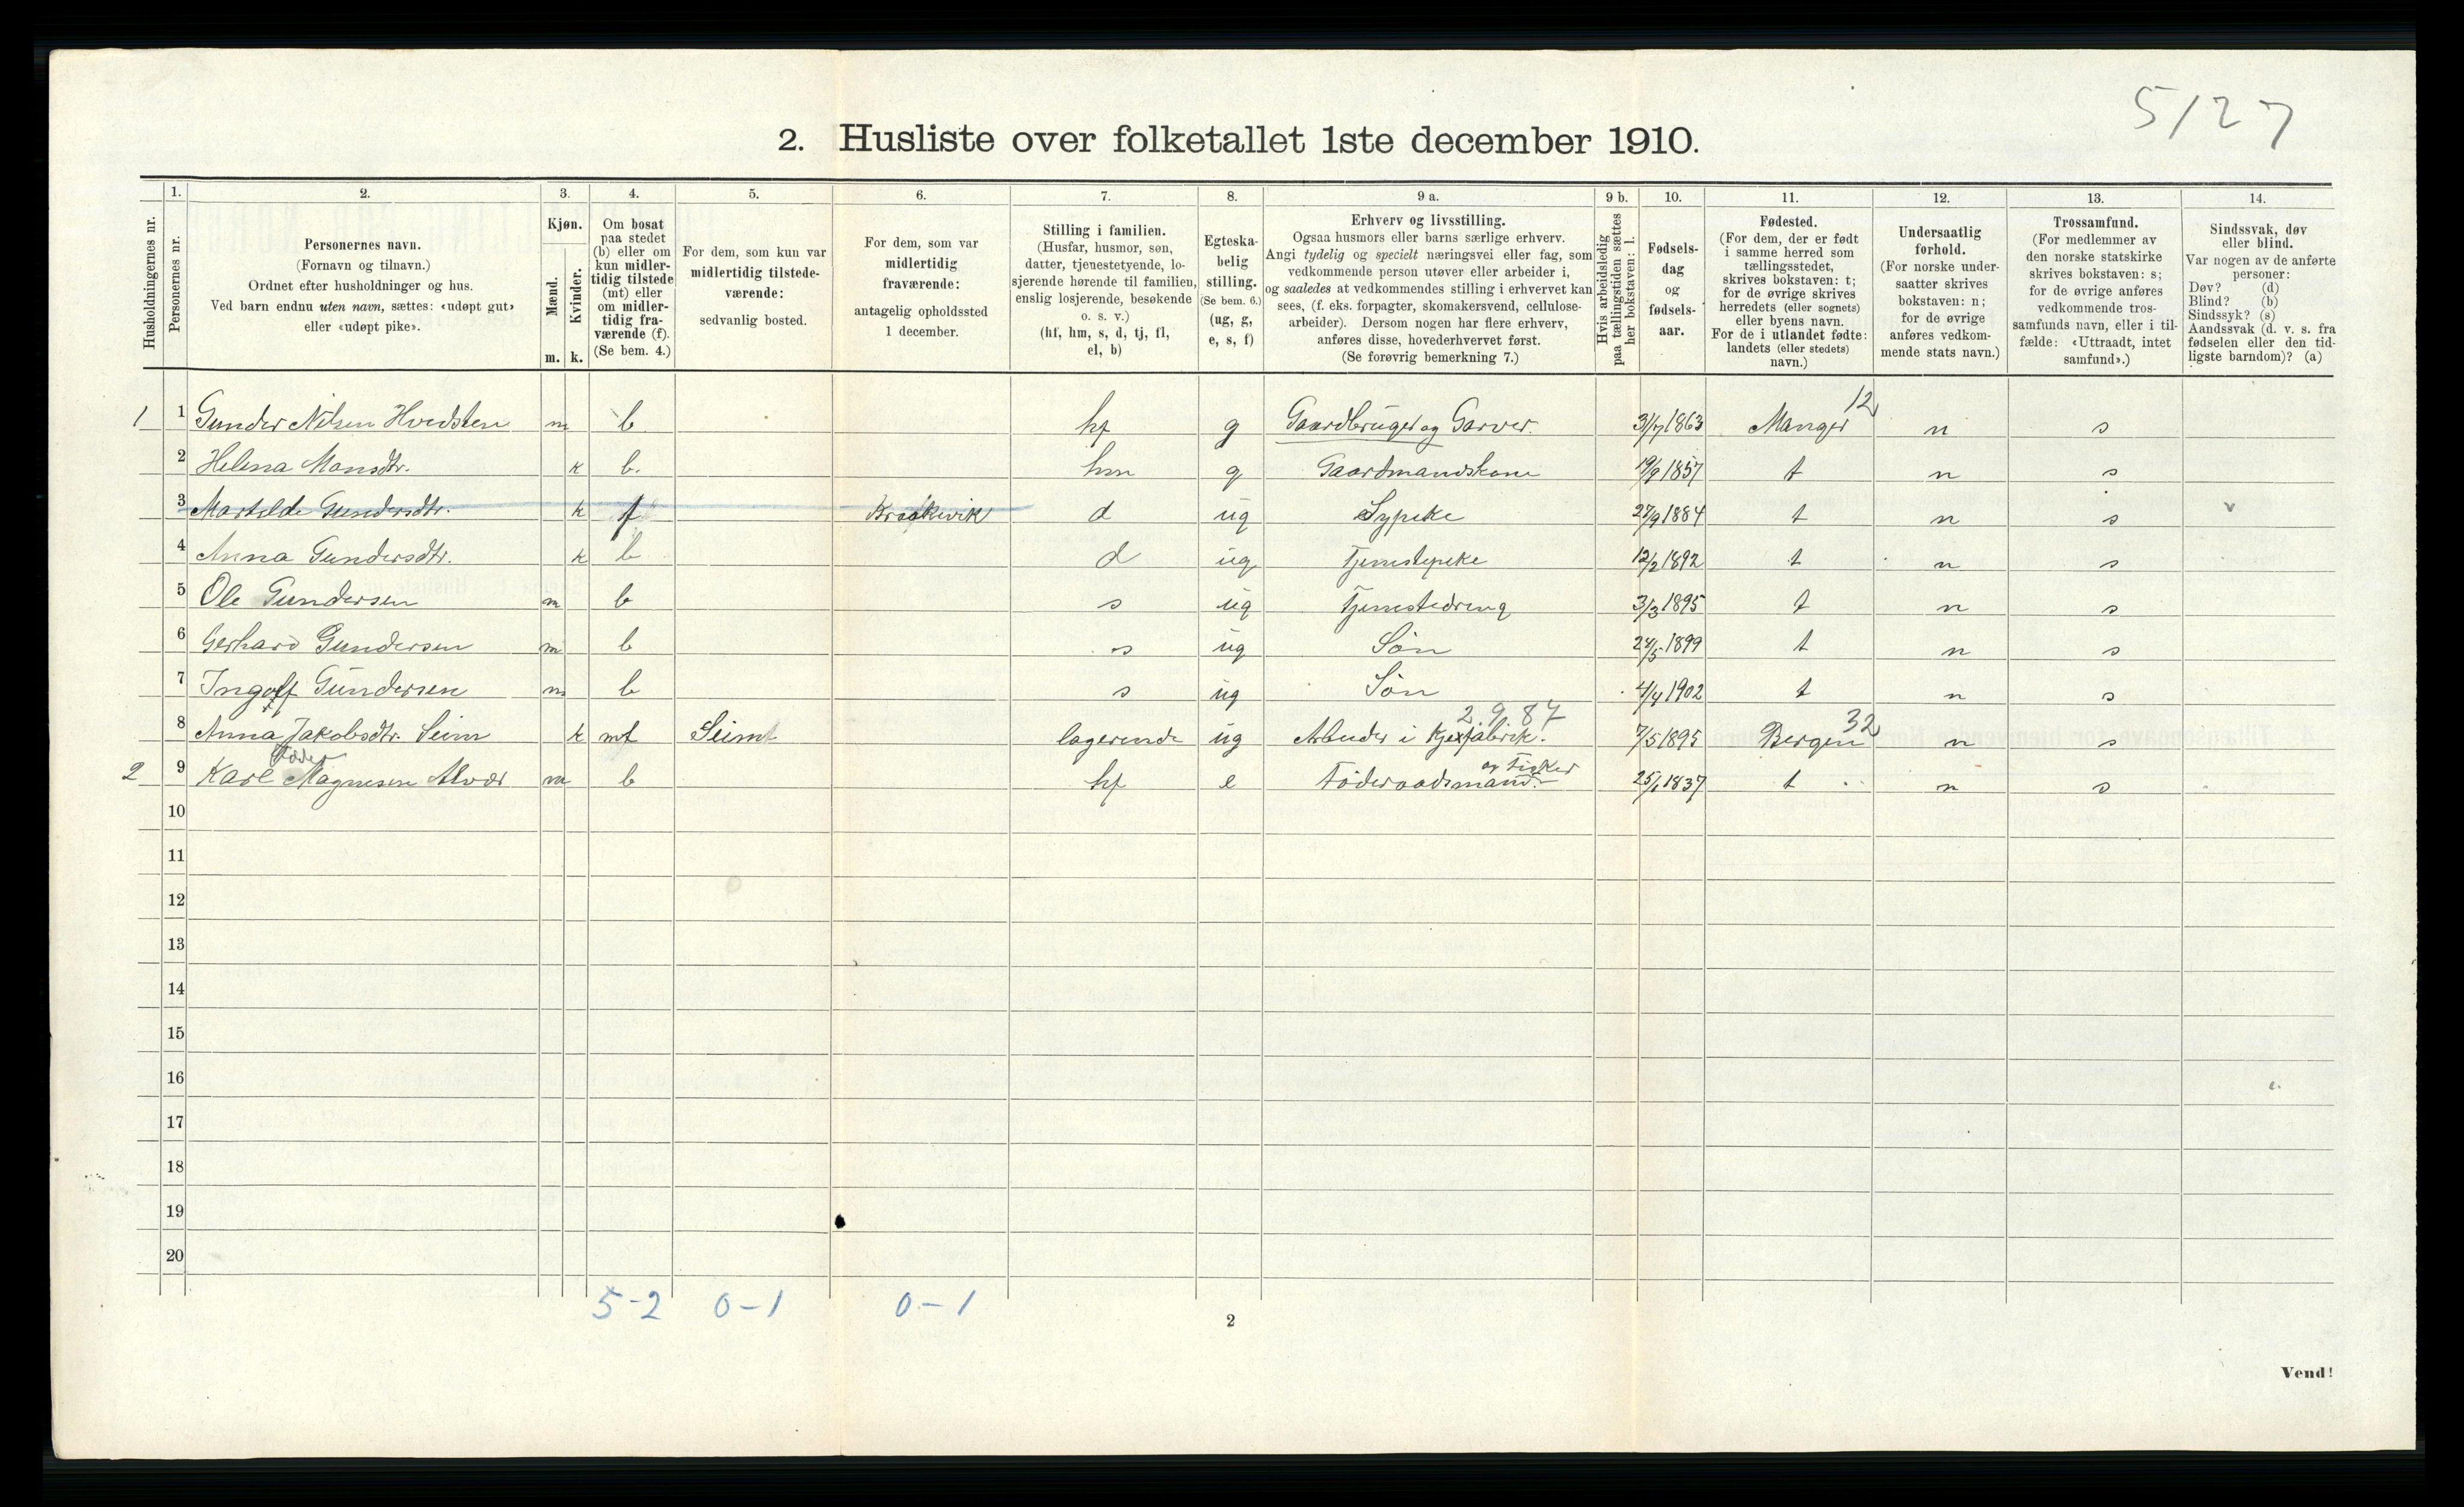 5/27
2. Husliste over folketallet 1ste december 1910.
Husholdningernes nr.
1. Personernes nr.
2. Personernes navn.
(Fornavn og tilnavn.)
Ordnet efter husholdninger og hus.
Ved barn endnu uten navn, sættes: «udøpt gut»
eller «udøpt pike».
3. Kjøn.
Mænd. m.
Kvinder. k.
4. Om bosat
paa stedet
(b) eller om
kun midler-
tidig tilstede
(mt) eller
om midler-
tidig fra-
værende (f).
(Se bem. 4.)
5. For dem, som kun var
midlertidig tilstede-
værende:
sedvanlig bosted.
6. For dem, som var
midlertidig
fraværende:
antagelig opholdssted
1 december.
7. Stilling i familien.
(Husfar, husmor, søn,
datter, tjenestetyende, lo-
sjerende hørende til familien,
enslig losjerende, besøkende
o. s. v.)
(hf, hm, s, d, tj, fl,
el, b)
8. Egteska-
belig
stilling.
(Se bem. 6.)
(ug, g,
e, s, f)
9 a. Erhverv og livsstilling.
Ogsaa husmors eller barns særlige erhverv.
Angi tydelig og specielt næringsvei eller fag, som
vedkommende person utøver eller arbeider i,
og saaledes at vedkommendes stilling i erhvervet kan
sees, (f. eks. forpagter, skomakersvend, cellulose-
arbeider). Dersom nogen har flere erhverv,
anføres disse, hovederhvervet først.
(Se forøvrig bemerkning 7.)
9 b. Hvis arbeidsledig
paa tællingstiden sættes
her bokstaven: l.
10. Fødsels-
dag
og
fødsels-
aar.
11. Fødested.
(For dem, der er født
i samme herred som
tællingsstedet,
skrives bokstaven: t;
for de øvrige skrives
herredets (eller sognets)
eller byens navn.
For de i utlandet fødte:
landets (eller stedets)
navn.)
12. Undersaatlig
forhold.
(For norske under-
saatter skrives
bokstaven: n;
for de øvrige
anføres vedkom-
mende stats navn.)
13. Trossamfund.
(For medlemmer av
den norske statskirke
skrives bokstaven: s;
for de øvrige anføres
vedkommende tros-
samfunds navn, eller i til-
fælde: «Uttraadt, intet
samfund».)
14. Sindssvak, døv
eller blind.
Var nogen av de anførte
personer:
Døv? (d)
Blind? (b)
Sindssyk? (s)
Aandssvak (d. v. s. fra
fødselen eller den tid-
ligste barndom)? (a)
1 1 Gunder Nilsen Hvidsten m b hf g Gaardbruger og Garver. 31/7 1863 Manger 12 n s
2 Helena Monsdtr. k b. hm g Gaardmandskone 19/9 1857 t n s
3 Martilde Gundersdtr. k f Braakvik d ug Sypike 27/9 1884 t n s
4 Anna Gundersdtr. k b d ug Tjenestepike 12/2 1892 t n s
5 Ole Gundersen m b s ug Tjenestedreng 3/3 1895 t n s
6 Gerhard Gundersen m b s ug Søn 24/5 1899 t n s
7 Ingolf Gundersen m b s ug Søn 4/4 1902 t n s
2.9.87
8 Anna Jakobsdtr. Seim k mt Seim lagerende ug Arbeider i Kjexfabrik. 7/5 1895 Bergen 32 n s
2 9 Karl Magnesen Alvær m b hf e Føderaadsmand og Fisker 25/1 1837 t n s
10
11
12
13
14
15
16
17
18
19
20
5-2 0-1 0-1
2
Vend!